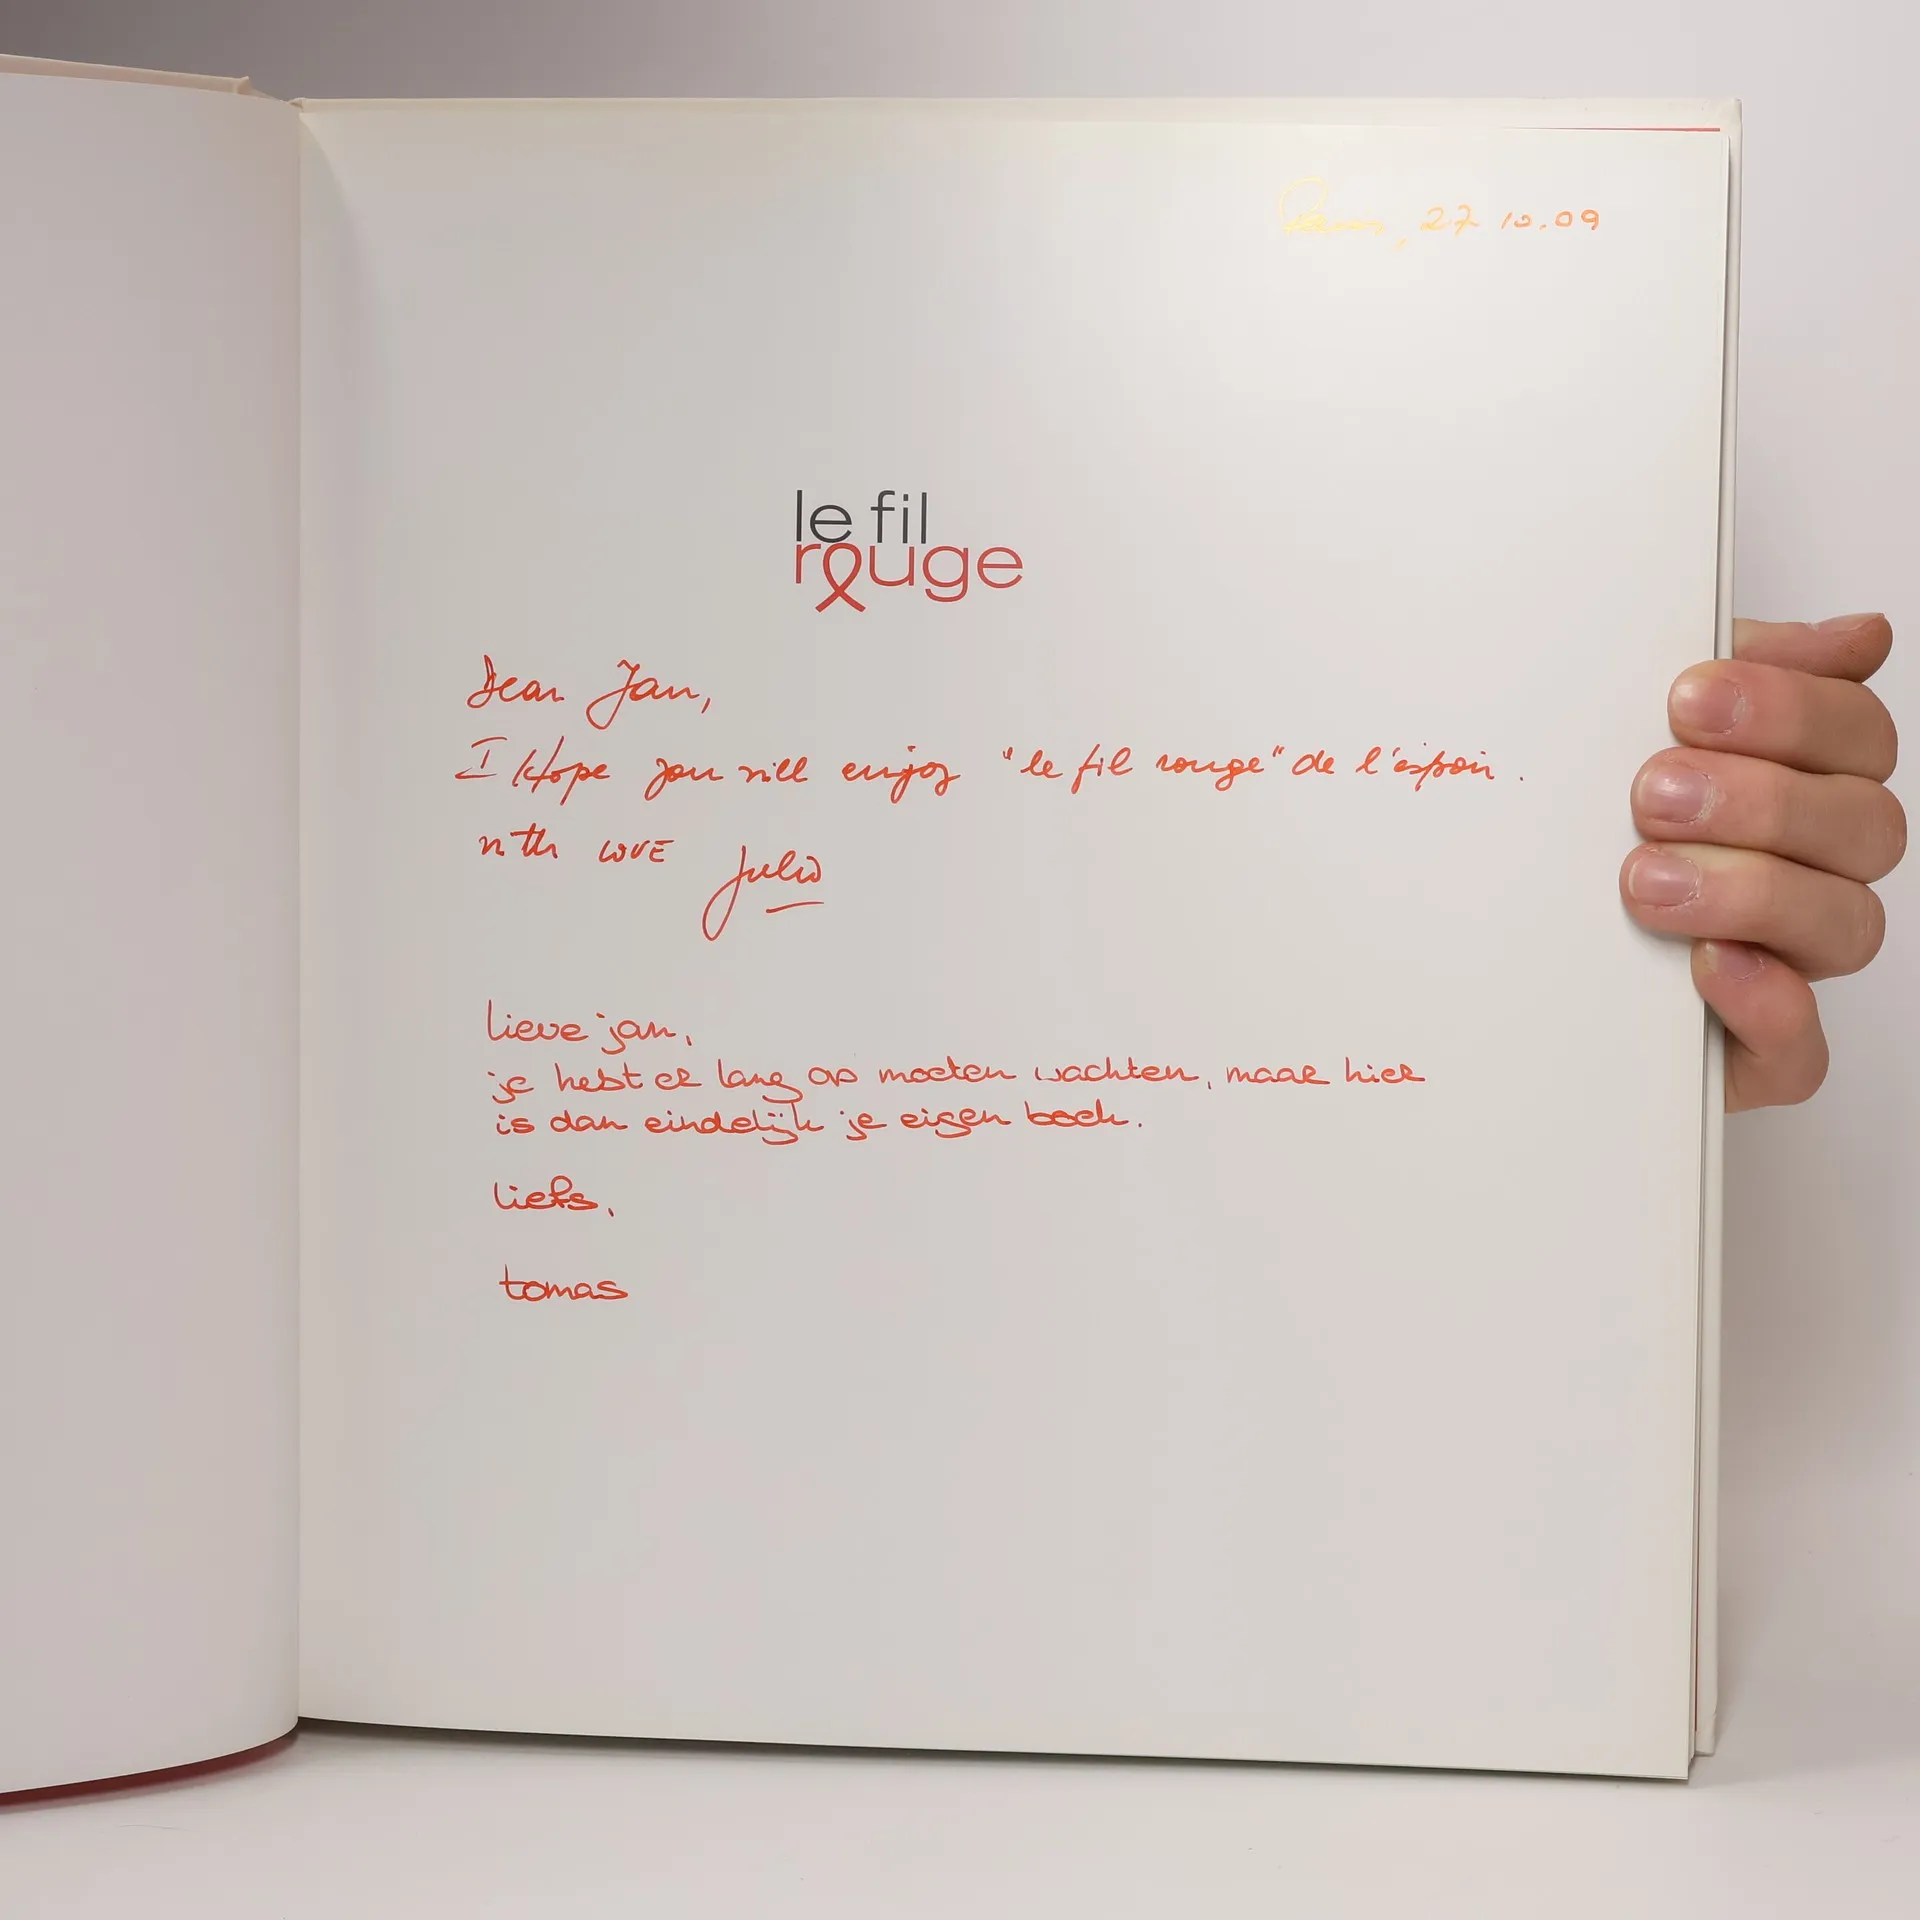 Paris, 27 10.09
le fil
rouge
Dear Jan,
I Hope you will enjoy "le fil rouge" de l'espoir.
with LOVE Julio
lieve jan,
je hebt er lang op moeten wachten, maar hier
is dan eindelijk je eigen boek.
liefs,
tomas